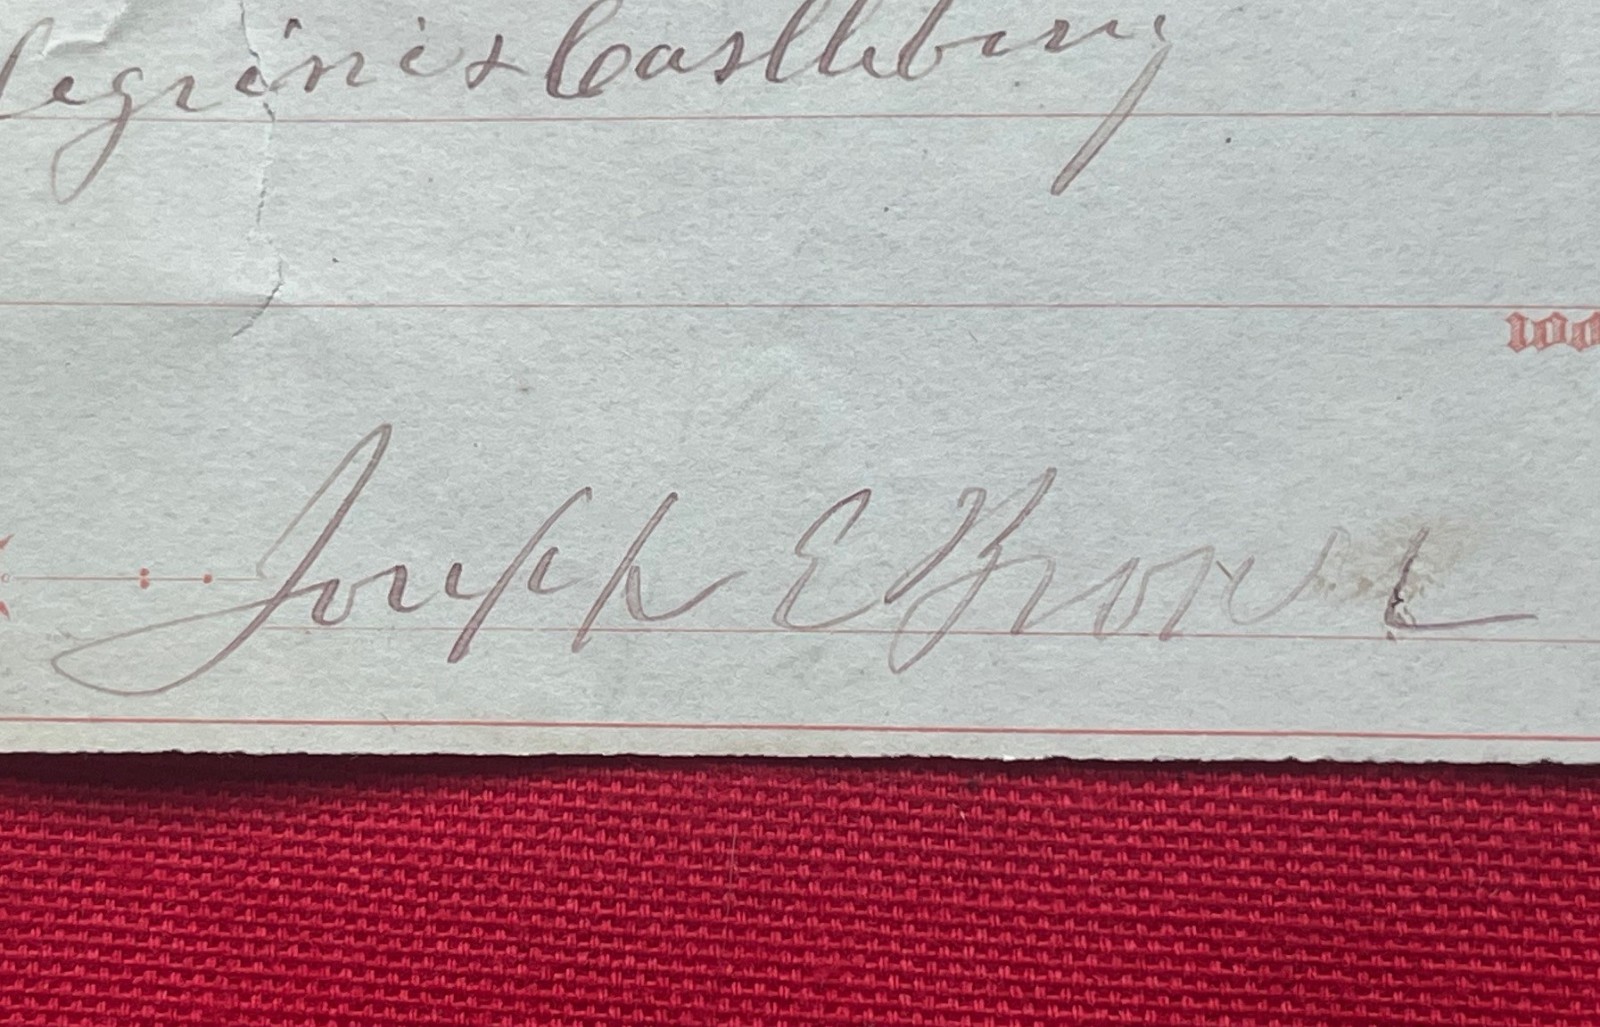 legrini & Castlebery
100
Joseph E Brown